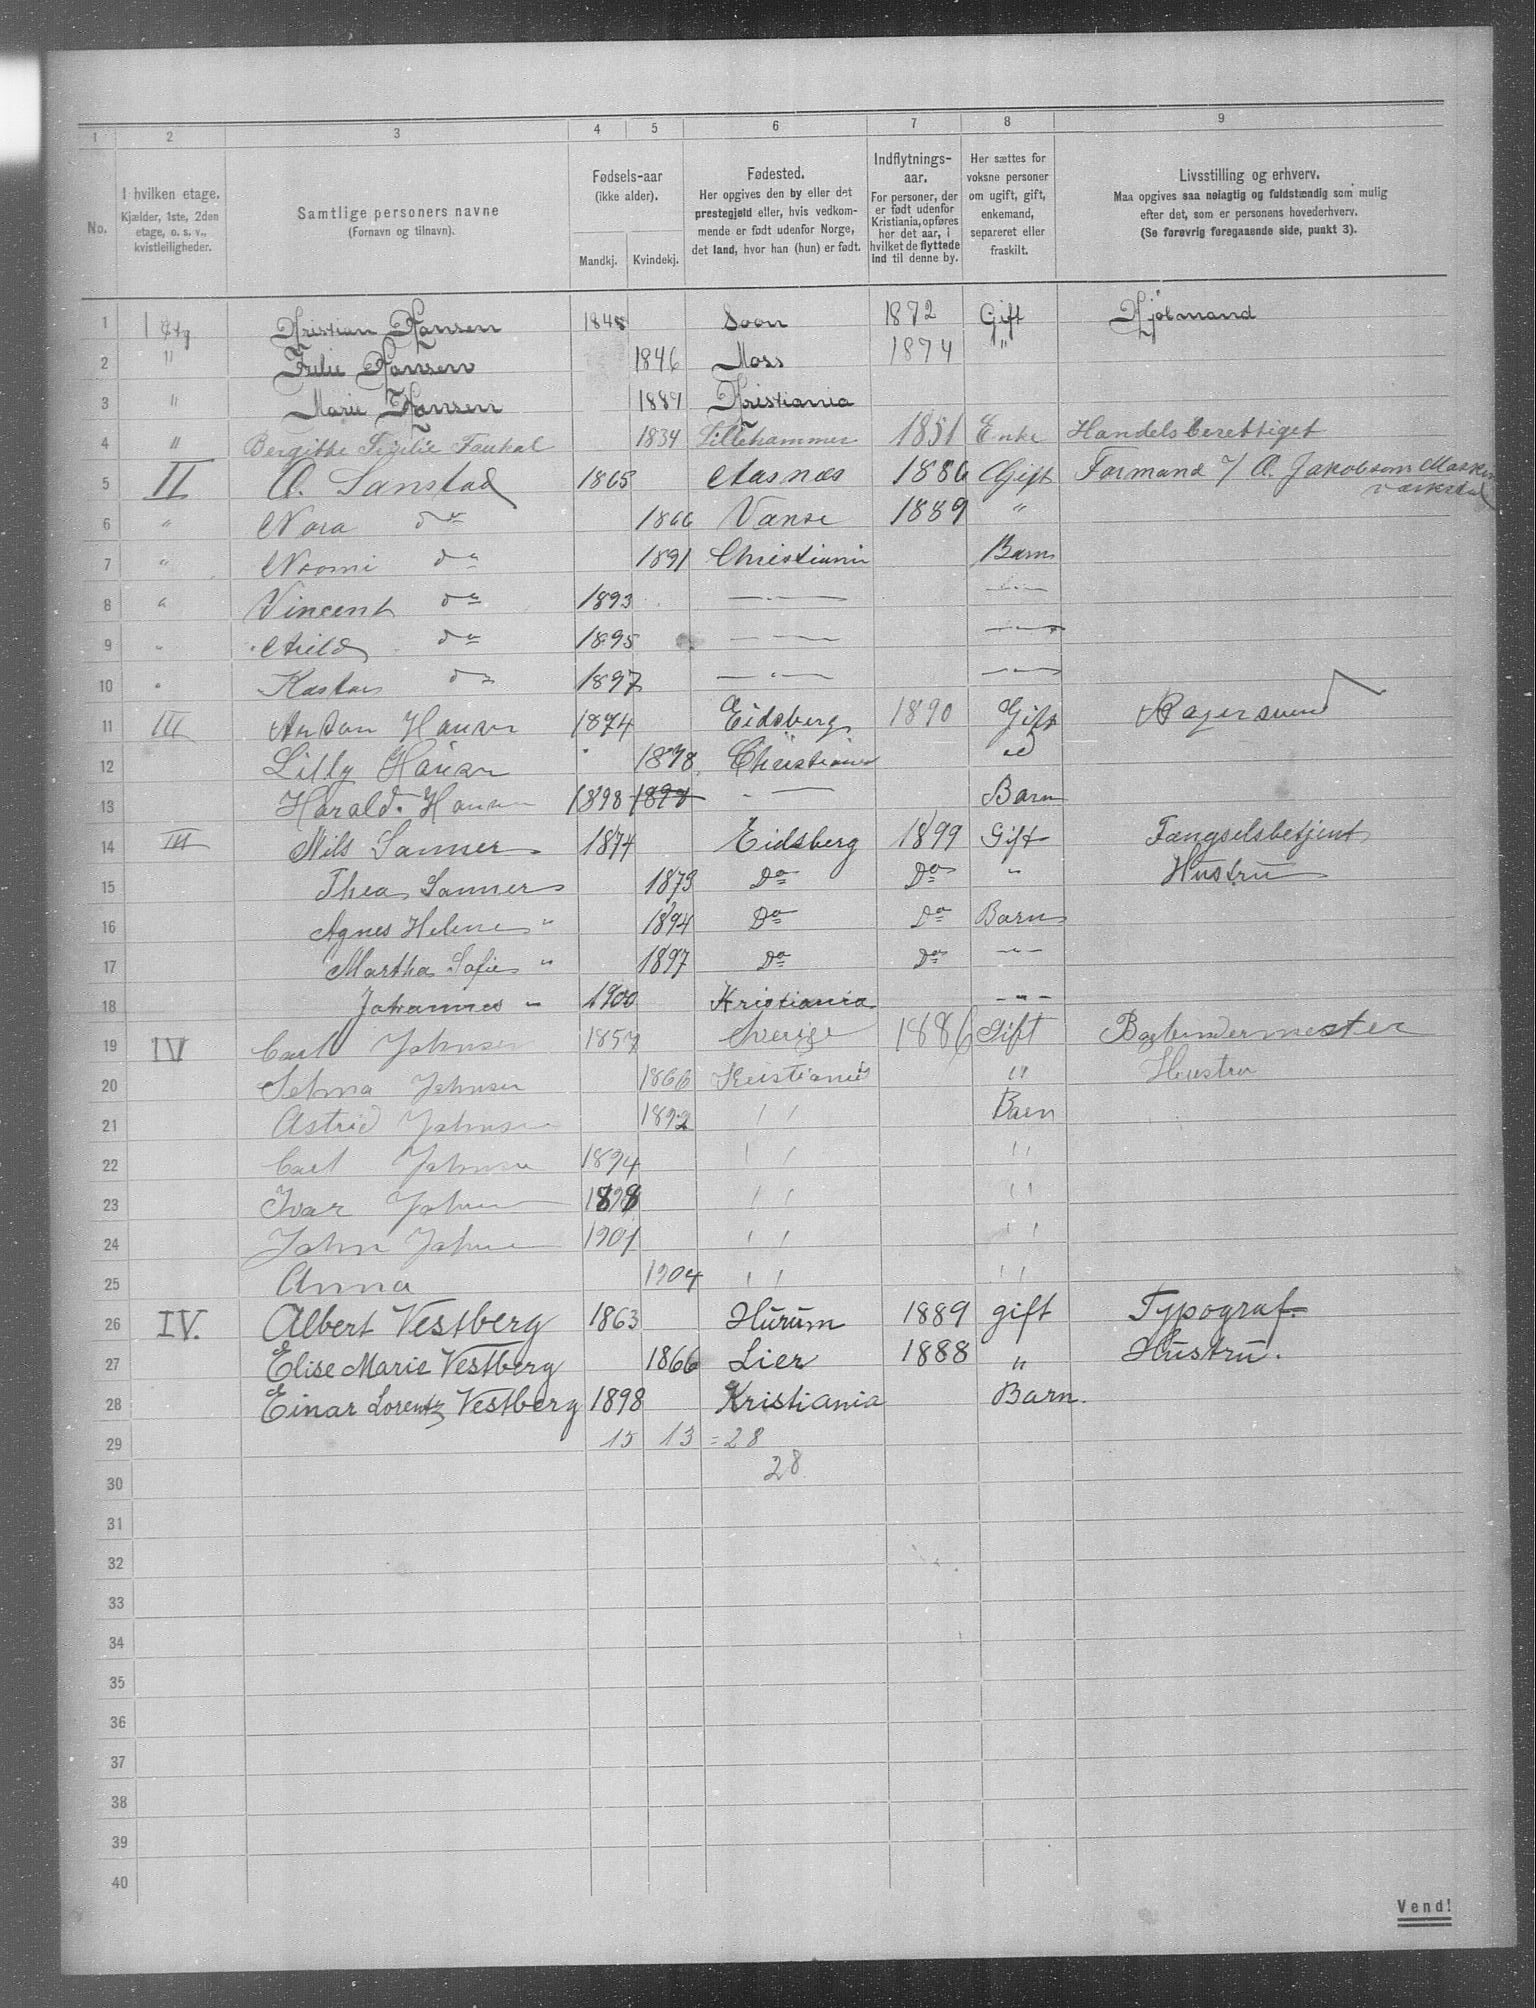 1 2 3 4 5 6 7 8 9
No.
I hvilken etage.
Kjælder, 1ste, 2den
etage, o. s. v.,
kvistleiligheder.
Samtlige personers navne
(Fornavn og tilnavn).
Fødsels-aar
(ikke alder).
Mandkj. Kvindekj.
Fødested.
Her opgives den by eller det
prestegjeld eller, hvis vedkom-
mende er født udenfor Norge,
det land, hvor han (hun) er født.
Indflytnings-
aar.
For personer, der
er født udenfor
Kristiania, opføres
her det aar, i
hvilket de flyttede
ind til denne by.
Her sættes for
voksne personer
om ugift, gift,
enkemand,
separeret eller
fraskilt.
Livsstilling og erhverv.
Maa opgives saa nøiagtig og fuldstændig som mulig
efter det, som er personens hovederhverv.
(Se forøvrig foregaaende side, punkt 3).
1 1 Etg Kristian Hansen 1848 Soon 1872 Gift Kjöbmand
2 " Hansen 1846 Moss 1874 "
3 " Marie Hansen 1889 Kristiania
4 " Bergitte 1834 Lillehammer 1851 Enke Handelsberettiget
5 II O. Sanstad 1865 Aasnæs 1886 Gift Formand / O. Jakobsens Maskin
værksted
6 " Nora do 1866 Vanse 1889 "
7 " Noomi do 1891 Christiania Barn
8 " Vincent do 1893 — " — — " —
9 " do 1895 — " — — " —
10 " do 1897 — " — — " —
11 III Anton Hansen 1874 Eidsberg 1890 Gift Bagersvend
12 Lilly Hansen " 1878 Christiania "
13 Harald Hansen 1898 — " — Barn
14 III Nils Sanner 1874 Eidsberg 1899 Gift Fængselsbetjent
15 Thea Sanner 1873 Do Do " Hustru
16 Agnes Helene " 1894 Do Do Barn
17 Martha Sofie " 1897 Do Do — " —
18 Johannes " 1900 Kristiania — " —
19 IV Carl Johnsen 1857 Sverige 1886 Gift Bogbindermester
20 Selma Johnsen 1866 Kristiania " Hustru
21 Astrid Johnsen 1892 " Barn
22 Carl Johnsen 1894 " "
23 Ivar Johnsen 1898 " "
24 John Johnsen 1901 " "
25 Anna 1904 " "
26 IV. Albert Vestberg 1863 Hurum 1889 gift Typograf.
27 Elise Marie Vestberg 1866 Lier 1888 " Hustru.
28 Einar Lorentz Vestberg 1898 Kristiania Barn.
29 15 13 = 28
30 28
31
32
33
34
35
36
37
38
39
40
Vend!